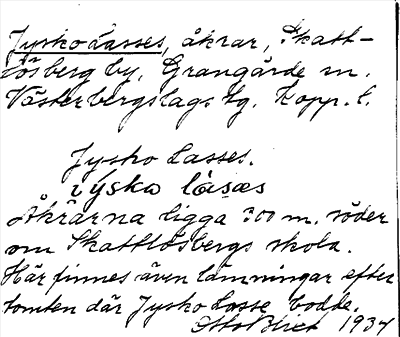 Jysko Lasses, åkrar, Skatt-
lösberg by, Grangärde sn.
Västerbergslags tg. Kopp. l.
Jysko Lasses.
jysko lasæs
Åkrarna ligga 300 m. söder
om Skattlösbergs skola.
Här finnes även lämningar efter
tomten där Jysko Lasse bodde.
Otto Blixt 1934